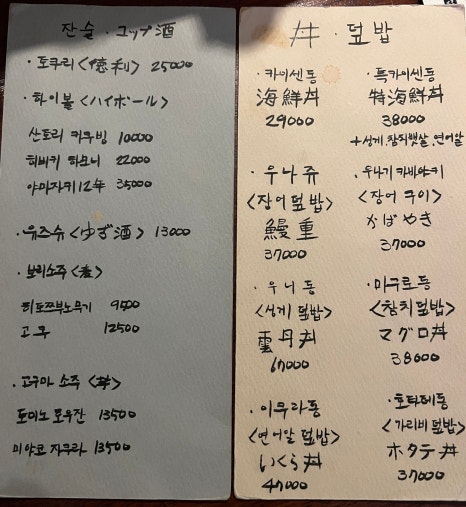 잔술 · コップ酒
· 도쿠리 <德利> 25000
· 하이볼 <ハイボール>
산토리 카쿠빙 10000
히비키 하모니 22000
야마자키 12年 35000
· 유즈슈 <ゆず酒> 13000
· 보리소주 <麦>
히토쯔부노무기 9500
12500
· 고구마 소주
토미노 호우잔 13500
미야코 자쿠라 13500
丼 · 덮밥
· 카이센동
海鮮丼
29000
· 특카이센동
特海鮮丼
38000
+ 성게, 참치뱃살, 연어알
· 우나쥬
<장어덮밥>
鰻重
37000
· 우나기 카바야키
<장어 구이>
かばやき
37000
· 우니동
<성게덮밥>
雲丹丼
67000
· 마구로동
<참치덮밥>
マグロ丼
38000
· 이쿠라동
<연어알 덮밥>
いくら丼
47000
· 호타테동
<가리비 덮밥>
ホタテ丼
37000